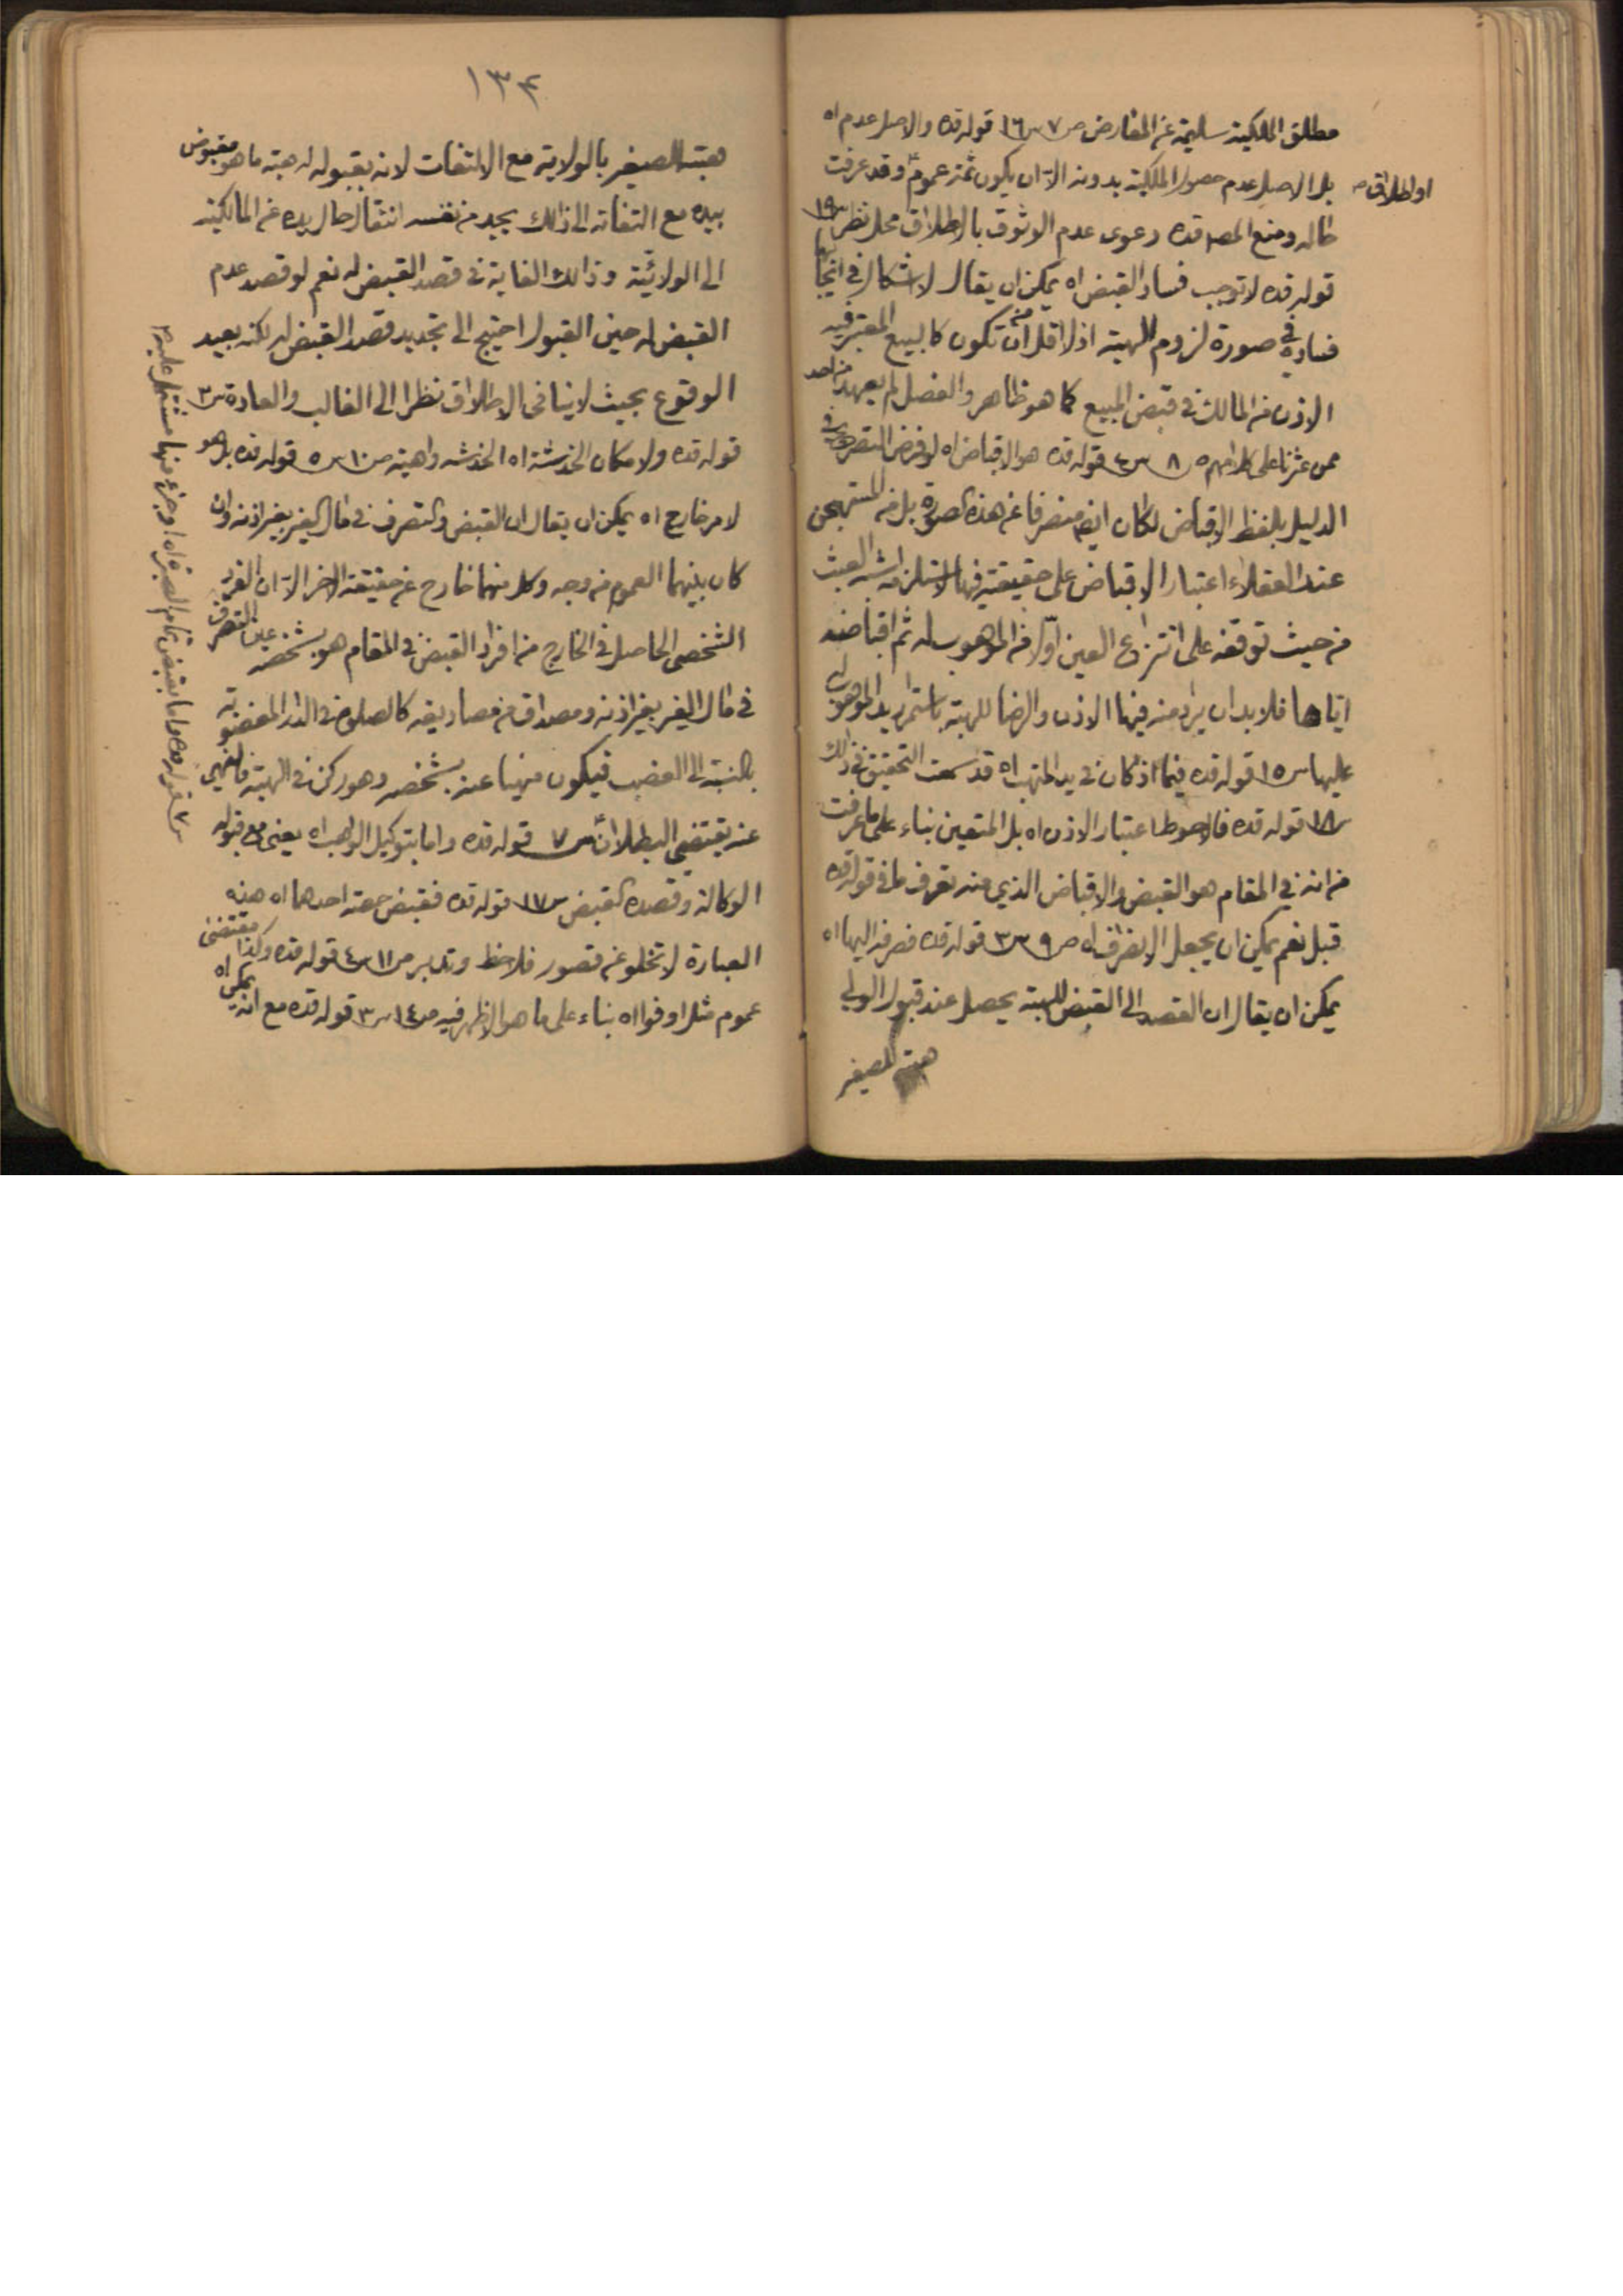 مطلق الملكية سليمة عن المعارض ص٧ س١٦ قوله قده والاصل عدم اه
او اطلاق
بل الاصل عدم حصول الملكية بدونه الا ان يكون ثمة عموم وقد عرفت
حاله ومنع المص قده دعوى عدم الوثوق بالاطلاق محل نظر س١٩
قوله قده لا توجب فساد القبض اه يمكن ان يقال لا اشكال في ايجابها
فساده في صورة لزوم الهبة اذ لا اقل من ان تكون كالبيع المعتبر فيه
الاذن من المالك في قبض المبيع كما هو ظاهر والفصل لم يعهد من احد
ممن عثرنا على كلامهم ص٨ س٤ قوله قده هو الاقباض اه لو فرض التصريح في
الدليل بلفظ الاقباض لكان ايضا منصرفا عن هذه الصورة بل من المستهجن
عند العقلاء اعتبار الاقباض على حقيقته فيها لاستلزامه شبه العبث
من حيث توقفه على انتزاع العين اولا من الموهوب له ثم اقباضه
اياها فلا بد ان يراد منه فيها الاذن والرضا للهبة باستمرار يد الموهوب له
عليها س١٥ قوله قده فيما اذ كان في يد المتهب اه قد سمعت التحقيق في ذلك
س١٨ قوله قده فالاحوط اعتبار الاذن اه بل المتعين بناء على ما عرفت
من انه في المقام هو القبض والاقباض الذي منه تعرف ما في قوله قده
قبل نعم يمكن ان يجعل الانصراف اه ص٩ س٣ قوله قده فصرفه اليها اه
يمكن ان يقال ان القصد الى القبض للهبة يحصل عند قبول الولي
هبة الصغير
١٣٤
هبة الصغير بالولاية مع الالتفات لانه بقبوله له هبة ما هو مقبوض
بيده مع التفاته الى ذالك يجد من نفسه انتقال حال يده عن المالكية
الى الولائية وذالك الغاية في قصد القبض له نعم لو قصد عدم
القبض له حين القبول احتيج الى تجديد قصد القبض له لكنه بعيد
الوقوع بحيث لا ينافي الاطلاق نظرا الى الغالب والعادة س٣
قوله قده ولا مكان الخدشة اه الخدشه واهية ص١٠ س٥ قوله قده بل هو
لامر خارج اه يمكن ان يقال ان القبض والتصرف في مال الغير بغير اذنه وان
كان بينهما العموم من وجه وكل منهما خارج عن حقيقة الاخر الا ان الفرد
الشخصي الحاصل في الخارج من افراد القبض في المقام هو بشخصه عين التصرف
في مال الغير بغير اذنه ومصداق من مصاديقه كالصلوة في الدار المغضوبة
بالنسبة الى الغضب فيكون منهيا عنه بشخصه وهو ركن في الهبة فالنهي
عنه يقتضي البطلان س٧ قوله قده واما بتوكيل الواهب اه يعني مع قبوله
الوكالة وقصده القبض س١٧ قوله قده فقبض حصة احدهما اه هذه
العبارة لا تخلو عن قصور فلاحظ وتدبر ص١١ س٤ قوله قده وكذا مقتضى
عموم مثل اوفوا اه بناء على ما هو الاظهر فيه ص١٤ س٣ قوله قده مع انه يمكن اه
س٧ قوله قده واما بقبض تمام الصبرة اه او جزء منها مشتمل عليه